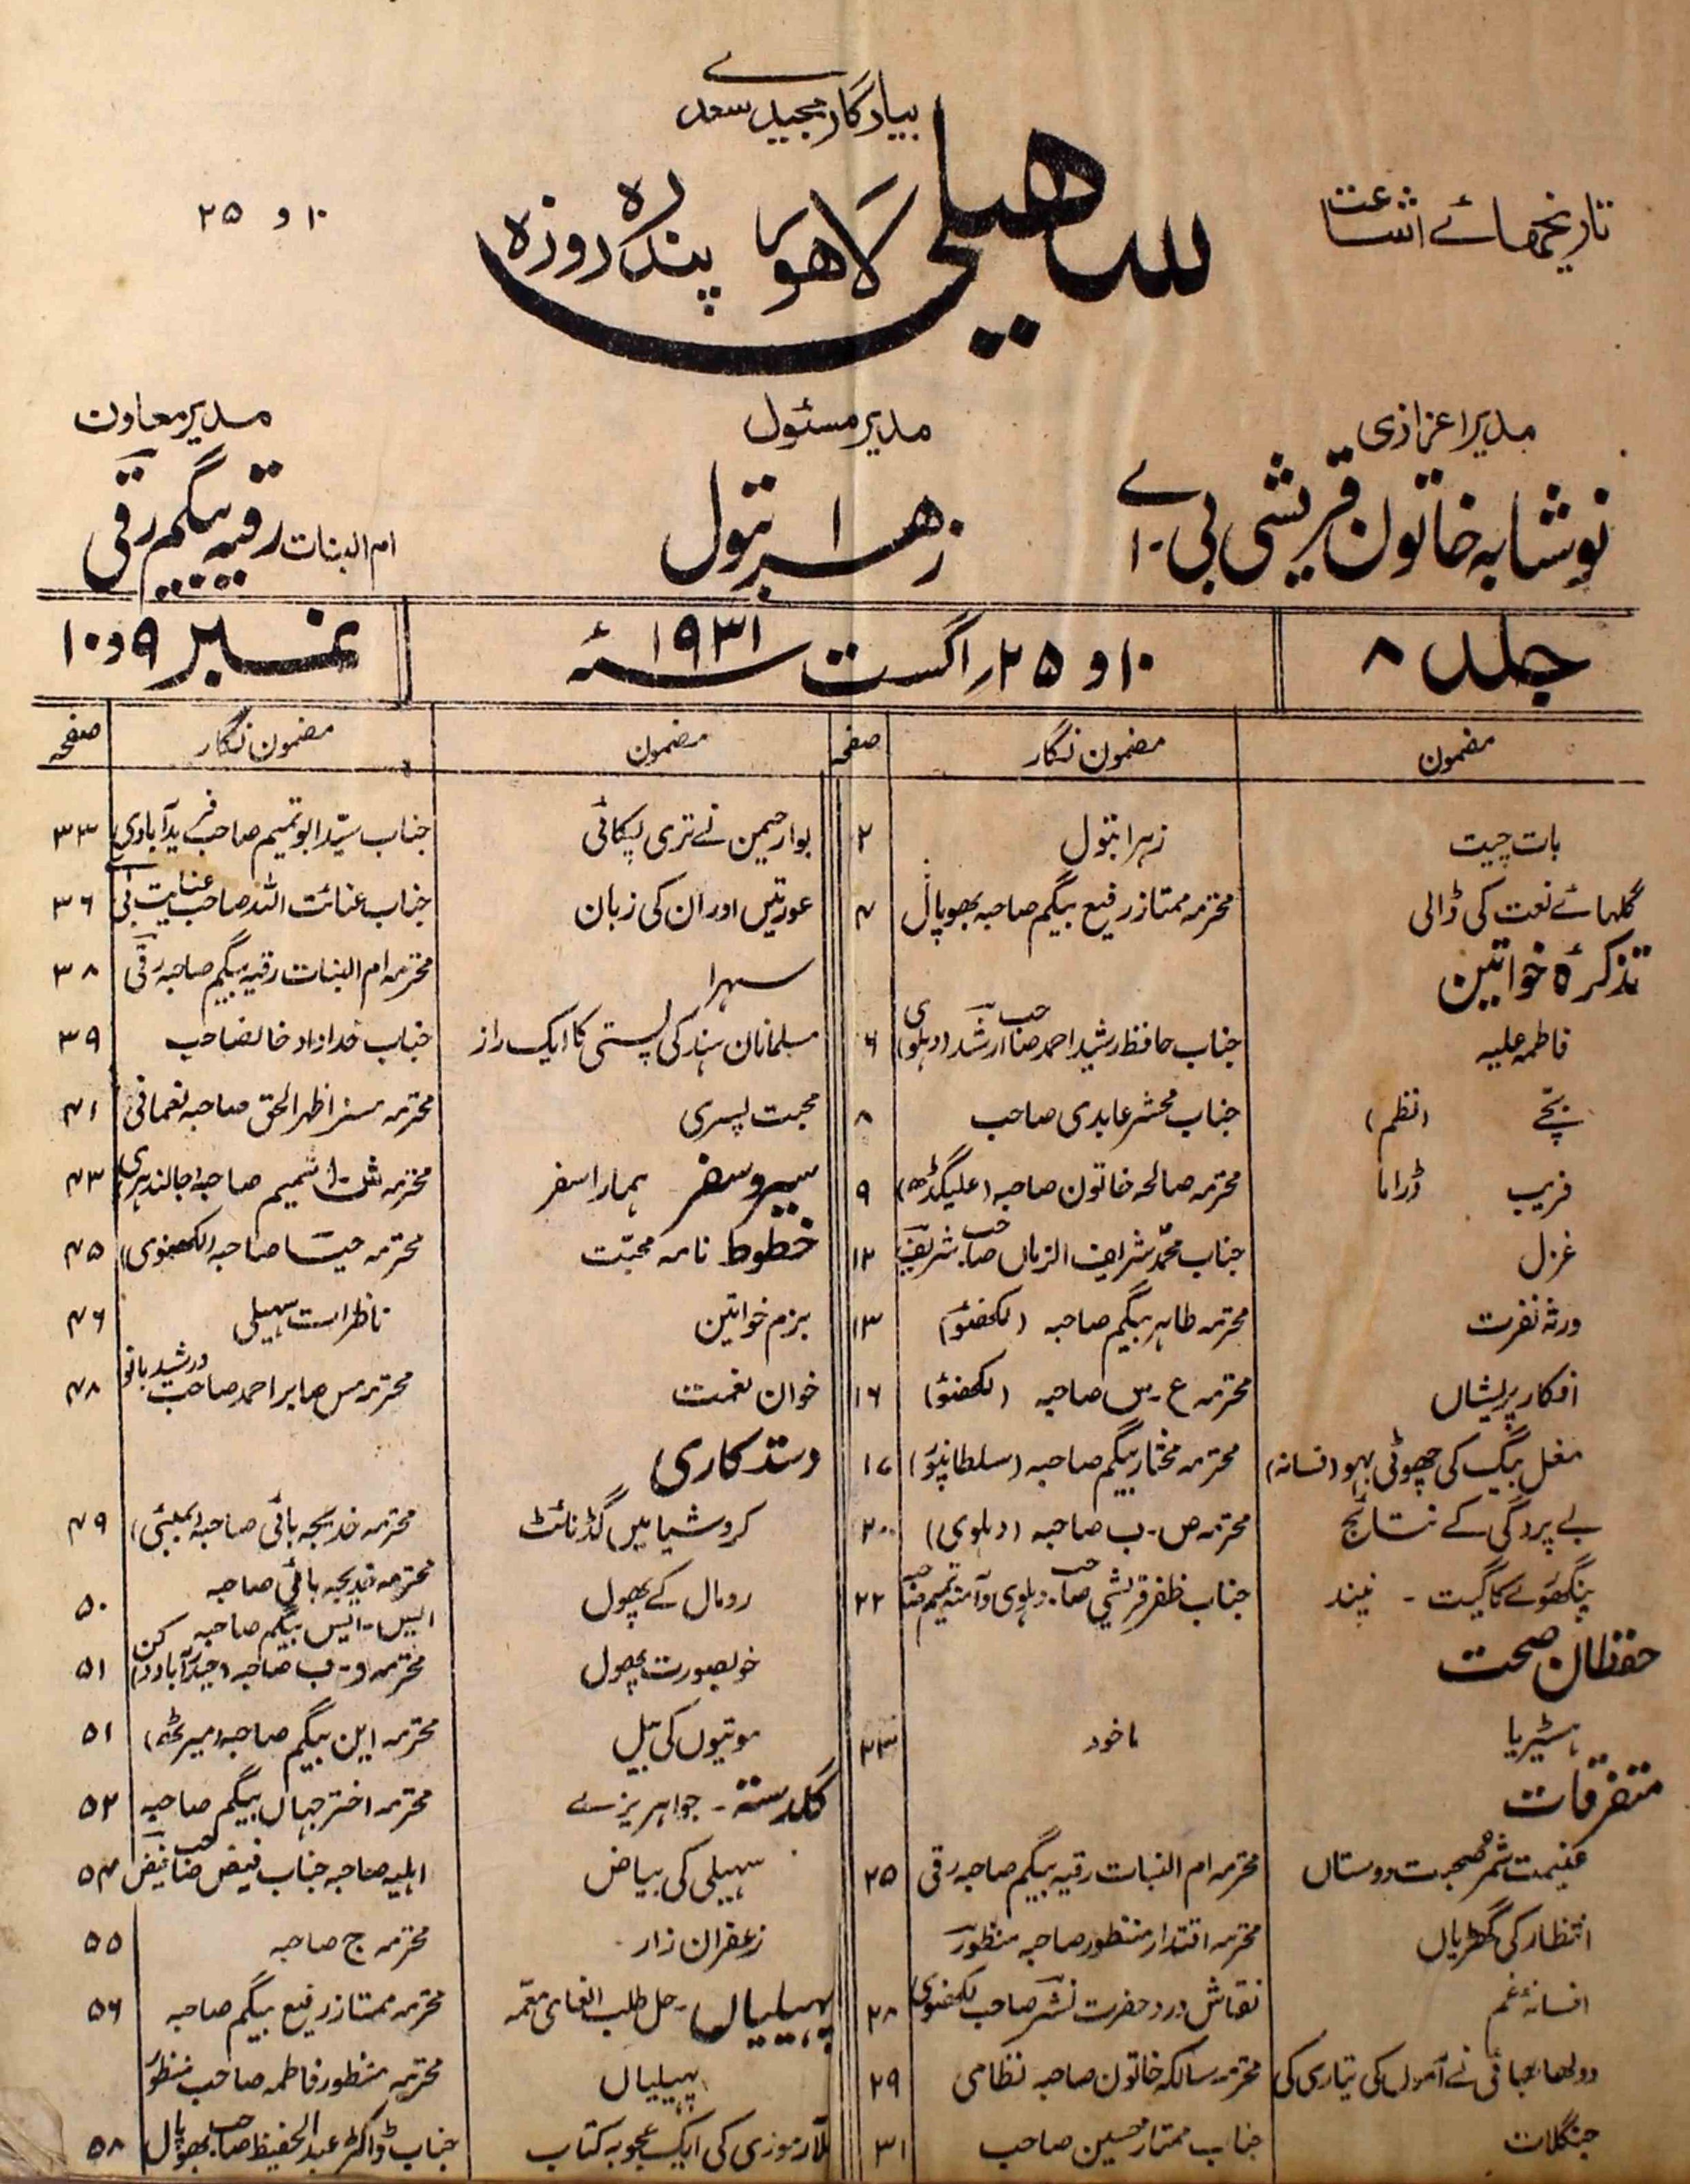 بیادگار مجیدی سعدی
تاریخہائے اشاعت
سہیلی
لاہور پندرہ روزہ
۱۰ و ۲۵
مدیر اعزازی
نوشابہ خاتون قریشی بی-اے
مدیر مسئول
زہرا بتول
مدیر معاون
ام البنات رقیہ بیگم رقی
جلد ۸
۱۰ و ۲۵ راگست ۱۹۳۱ء
نمبر ۹ و ۱۰
مضمون مضمون نگار صفحہ
بات چیت زہرا بتول ۲
گلہائے نعت کی ڈالی محترمہ ممتاز رفیع بیگم صاحبہ بھوپال ۴
تذکرۂ خواتین
فاطمہ علیہ جناب حافظ رشید احمد صاحب ارشد (دہلوی) ۶
بچّے (نظم) جناب محشر عابدی صاحب ۸
فریب ڈراما محترمہ صالحہ خاتون صاحبہ (علیگڑھ) ۹
غزل جناب محمد شریف الزماں صاحب شریف ۱۲
ورثہ نفرت محترمہ طاہر بیگم صاحبہ (لکھنؤ) ۱۳
افکار پریشاں محترمہ ع-س صاحبہ (لکھنؤ) ۱۶
مغل بیگ کی چھوٹی بہو (فسانہ) محترمہ مختار بیگم صاحبہ (سلطانپور) ۱۷
بے پردگی کے نتائج محترمہ ص-ب صاحبہ (دہلوی) ۲۰
پنگھوڑے کا گیت - نیند جناب ظفر قریشی صاحب دہلوی و آمنہ تمیم صاحبہ ۲۲
حفظان صحت
ہسٹیریا ماخوذ ۲۳
متفرقات
غنیمت شمر صحبت دوستاں محترمہ ام البنات رقیہ بیگم صاحبہ رقی ۲۵
انتظار کی گھڑیاں محترمہ اقتدار منظور صاحبہ منظور
افسانۂ غم نقاش درد حضرت نشر صاحب لکھنوی ۲۸
دولھا بھائی نے آموں کی تیاری کی محترمہ سالکہ خاتون صاحبہ نظامی ۲۹
جنگلات جناب ممتاز حسین صاحب ۳۱
مضمون مضمون نگار صفحہ
بوا رحیمن نے تری پکائی جناب سیّد ابو تمیم صاحب فریدآبادی ۳۳
عورتیں اور ان کی زبان جناب عنائت اللہ صاحب عنایت بی اے ۳۶
سہرا محترمہ ام البنات رقیہ بیگم صاحبہ رقی ۳۸
مسلمانان ہند کی پستی کا ایک راز جناب خداداد خانصاحب ۳۹
محبت پسری محترمہ مسز اظہر الحق صاحبہ نعمانی ۴۱
سیر و سفر ہمارا سفر محترمہ ش-ا شمیم صاحبہ (جالندہری) ۴۳
خطوط نامہ محبّت محترمہ حیا صاحبہ (لکھنوی) ۴۵
بزم خواتین ناظرات سہیلی ۴۶
خوان نعمت محترمہ مس صابر احمد صاحب و رشید بانو ۴۸
دستکاری
کروشیا میں گڈ نائٹ محترمہ خدیجہ بائی صاحبہ (بمبئی) ۴۹
رومال کے پھول محترمہ خدیجہ بائی صاحبہ ۵۰
ایس-ایس بیگم صاحبہ
خوبصورت پھول محترمہ و-ب صاحبہ (حیدرآباد دکن) ۵۱
موتیوں کی بیل محترمہ این بیگم صاحبہ (میرٹھ) ۵۱
گلدستہ - جواہر ریزے محترمہ اختر جہاں بیگم صاحبہ ۵۲
سہیلی کی بیاض اہلیہ صاحبہ جناب فیض صاحب فیض ۵۴
زعفران زار محترمہ ج صاحبہ ۵۵
پہیلیاں - حل طلب الغای معمّہ محترمہ ممتاز رفیع بیگم صاحبہ ۵۶
پہیلیاں محترمہ منظور فاطمہ صاحبہ منظور
ملا رموزی کی ایک عجوبہ کتاب جناب ڈاکٹر عبد الحفیظ صاحب بھوپال ۵۸